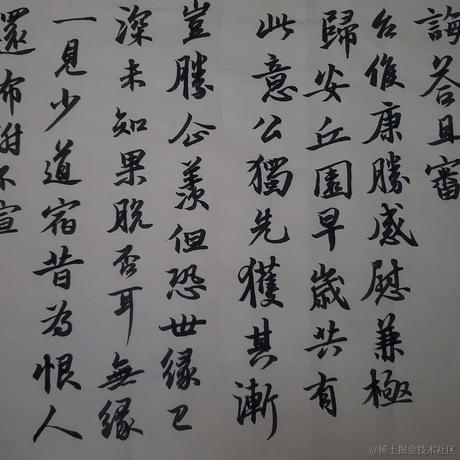 誨答且審
台候康勝感慰兼極
歸安丘園早歲共有
此意公獨先獲其漸
豈勝企羨但恐世緣已
深未知果脫否耳無緣
一見少道宿昔為恨人
還布謝不宣
@稀土掘金技术社区